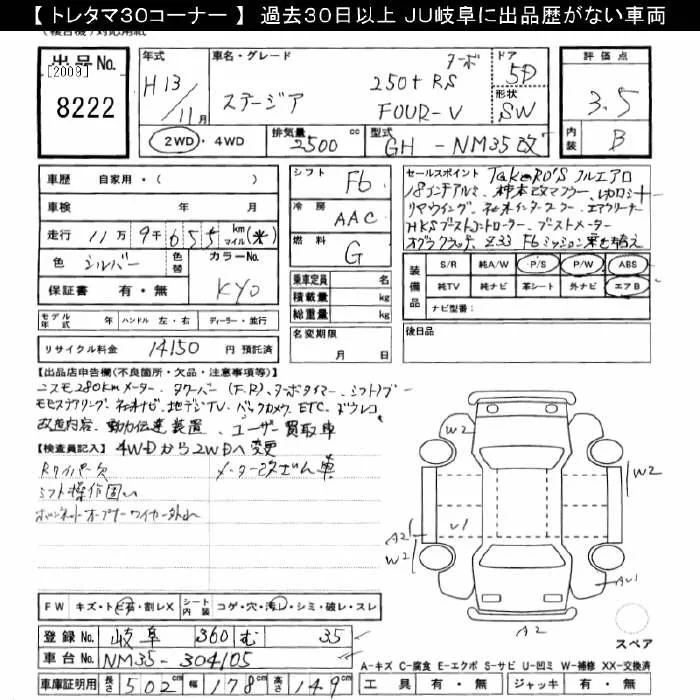 【 トレタマ30コーナー 】 過去30日以上 JU岐阜に出品歴がない車両
出品No.
[2009]
8222
年式
H13/11月
車名・グレード
ステージア
ターボ
250t RS
FOUR-V
ドア
5D
形状
SW
評価点
3.5
内装
B
2WD・4WD
排気量
2500 cc
型式
GH-NM35改
車歴 自家用・( )
車検 年 月
走行 11万9千655 km マイル (米)
色 シルバー
色替
カラーNo.
KY0
保証書 有・無
シフト
F6
冷房
AAC
燃料
G
乗車定員 名
積載量 kg
総重量 kg
名変期限
月 日
セールスポイント TAKERO'S フルエアロ
18インチアルミ、柿本改マフラー、レカロシート
リヤウイング、社外インタークーラー、エアクリーナー
HKSブーストコントローラー、ブーストメーター
オグラクラッチ、Z33 F6ミッション乗せ替え
装備品
S/R 純A/W P/S P/W ABS
純TV 純ナビ 革シート 外ナビ エアB
ナビ型番:
後日品
モデル年式 年 ハンドル 左・右 ディーラー・並行
リサイクル料金 14150 円 預託済
【出品店申告欄(不良箇所・欠品・注意事項等)】
ニスモ280kmメーター、タワーバー(F.R)、ターボタイマー、シフトノブ
モモステアリング、社外ナビ、地デジTV、バックカメラ、ETC、ドラレコ
改造内容、動力伝達装置、ユーザー買取車
【検査員記入】 4WDから2WDへ変更
Rワイパー欠 メーター改ざん車
シフト操作固い
ボンネットオープナーワイヤー外れ
W2
W2
U1
A2
W2
AU1
A2
スペア
FW キズ・トビ石・割レX シート内装 コゲ・穴・汚レ・シミ・破レ・スレ
登録No. 岐阜 360 む 35
車台No. NM35-304105
車庫証明用 長さ 502 cm 幅 178 cm 高さ 149 cm
A-キズ C-腐食 E-エクボ S-サビ U-凹ミ W-補修 XX-交換済
工具 有・無 ジャッキ 有・無